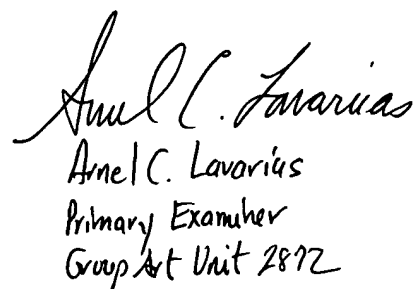 Arnel C. Lavarias
Arnel C. Lavarias
Primary Examiner
Group Art Unit 2872